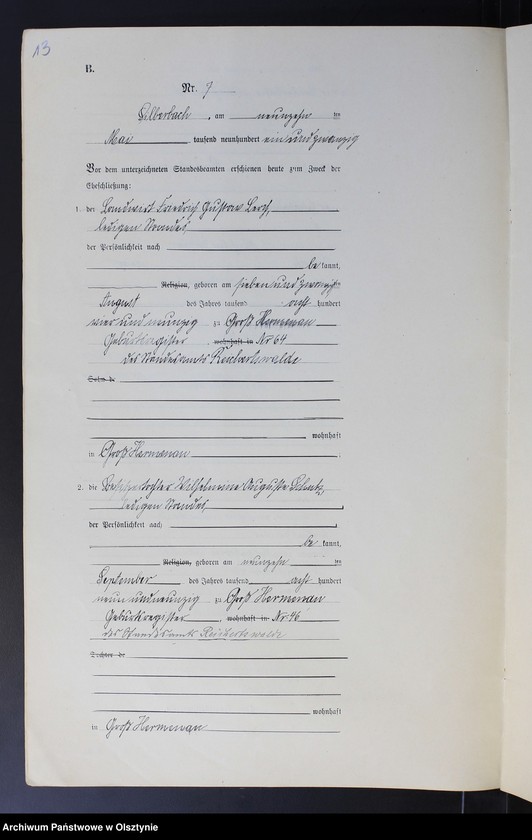 13
B.
Nr. 7
Silberbach, am neunzehn ten
Mai tausend neunhundert ein und zwanzig
Vor dem unterzeichneten Standesbeamten erschienen heute zum Zweck der
Eheschließung:
1. der Landwirt Friedrich Gustav
ledigen Standes
der Persönlichkeit nach
be kannt,
Religion, geboren am sieben und zwanzigsten
August des Jahrs tausend acht hundert
vier und neunzig zu Groß Hermenau
Geburtsregister, wohnhaft in Nr 64
des Standesamts Reichertswalde
Sohn de
wohnhaft
in Groß Hermenau.
2. die Besitzertochter Wilhelmine Auguste
ledigen Standes,
der Persönlichkeit nach
be kannt,
Religion, geboren am neunzehn ten
September des Jahrs tausend acht hundert
neun und neunzig zu Groß Hermenau
Geburtsregister, wohnhaft in Nr 46
des Standesamts Reichertswalde
Tochter de
wohnhaft
in Groß Hermenau
Archiwum Państwowe w Olsztynie